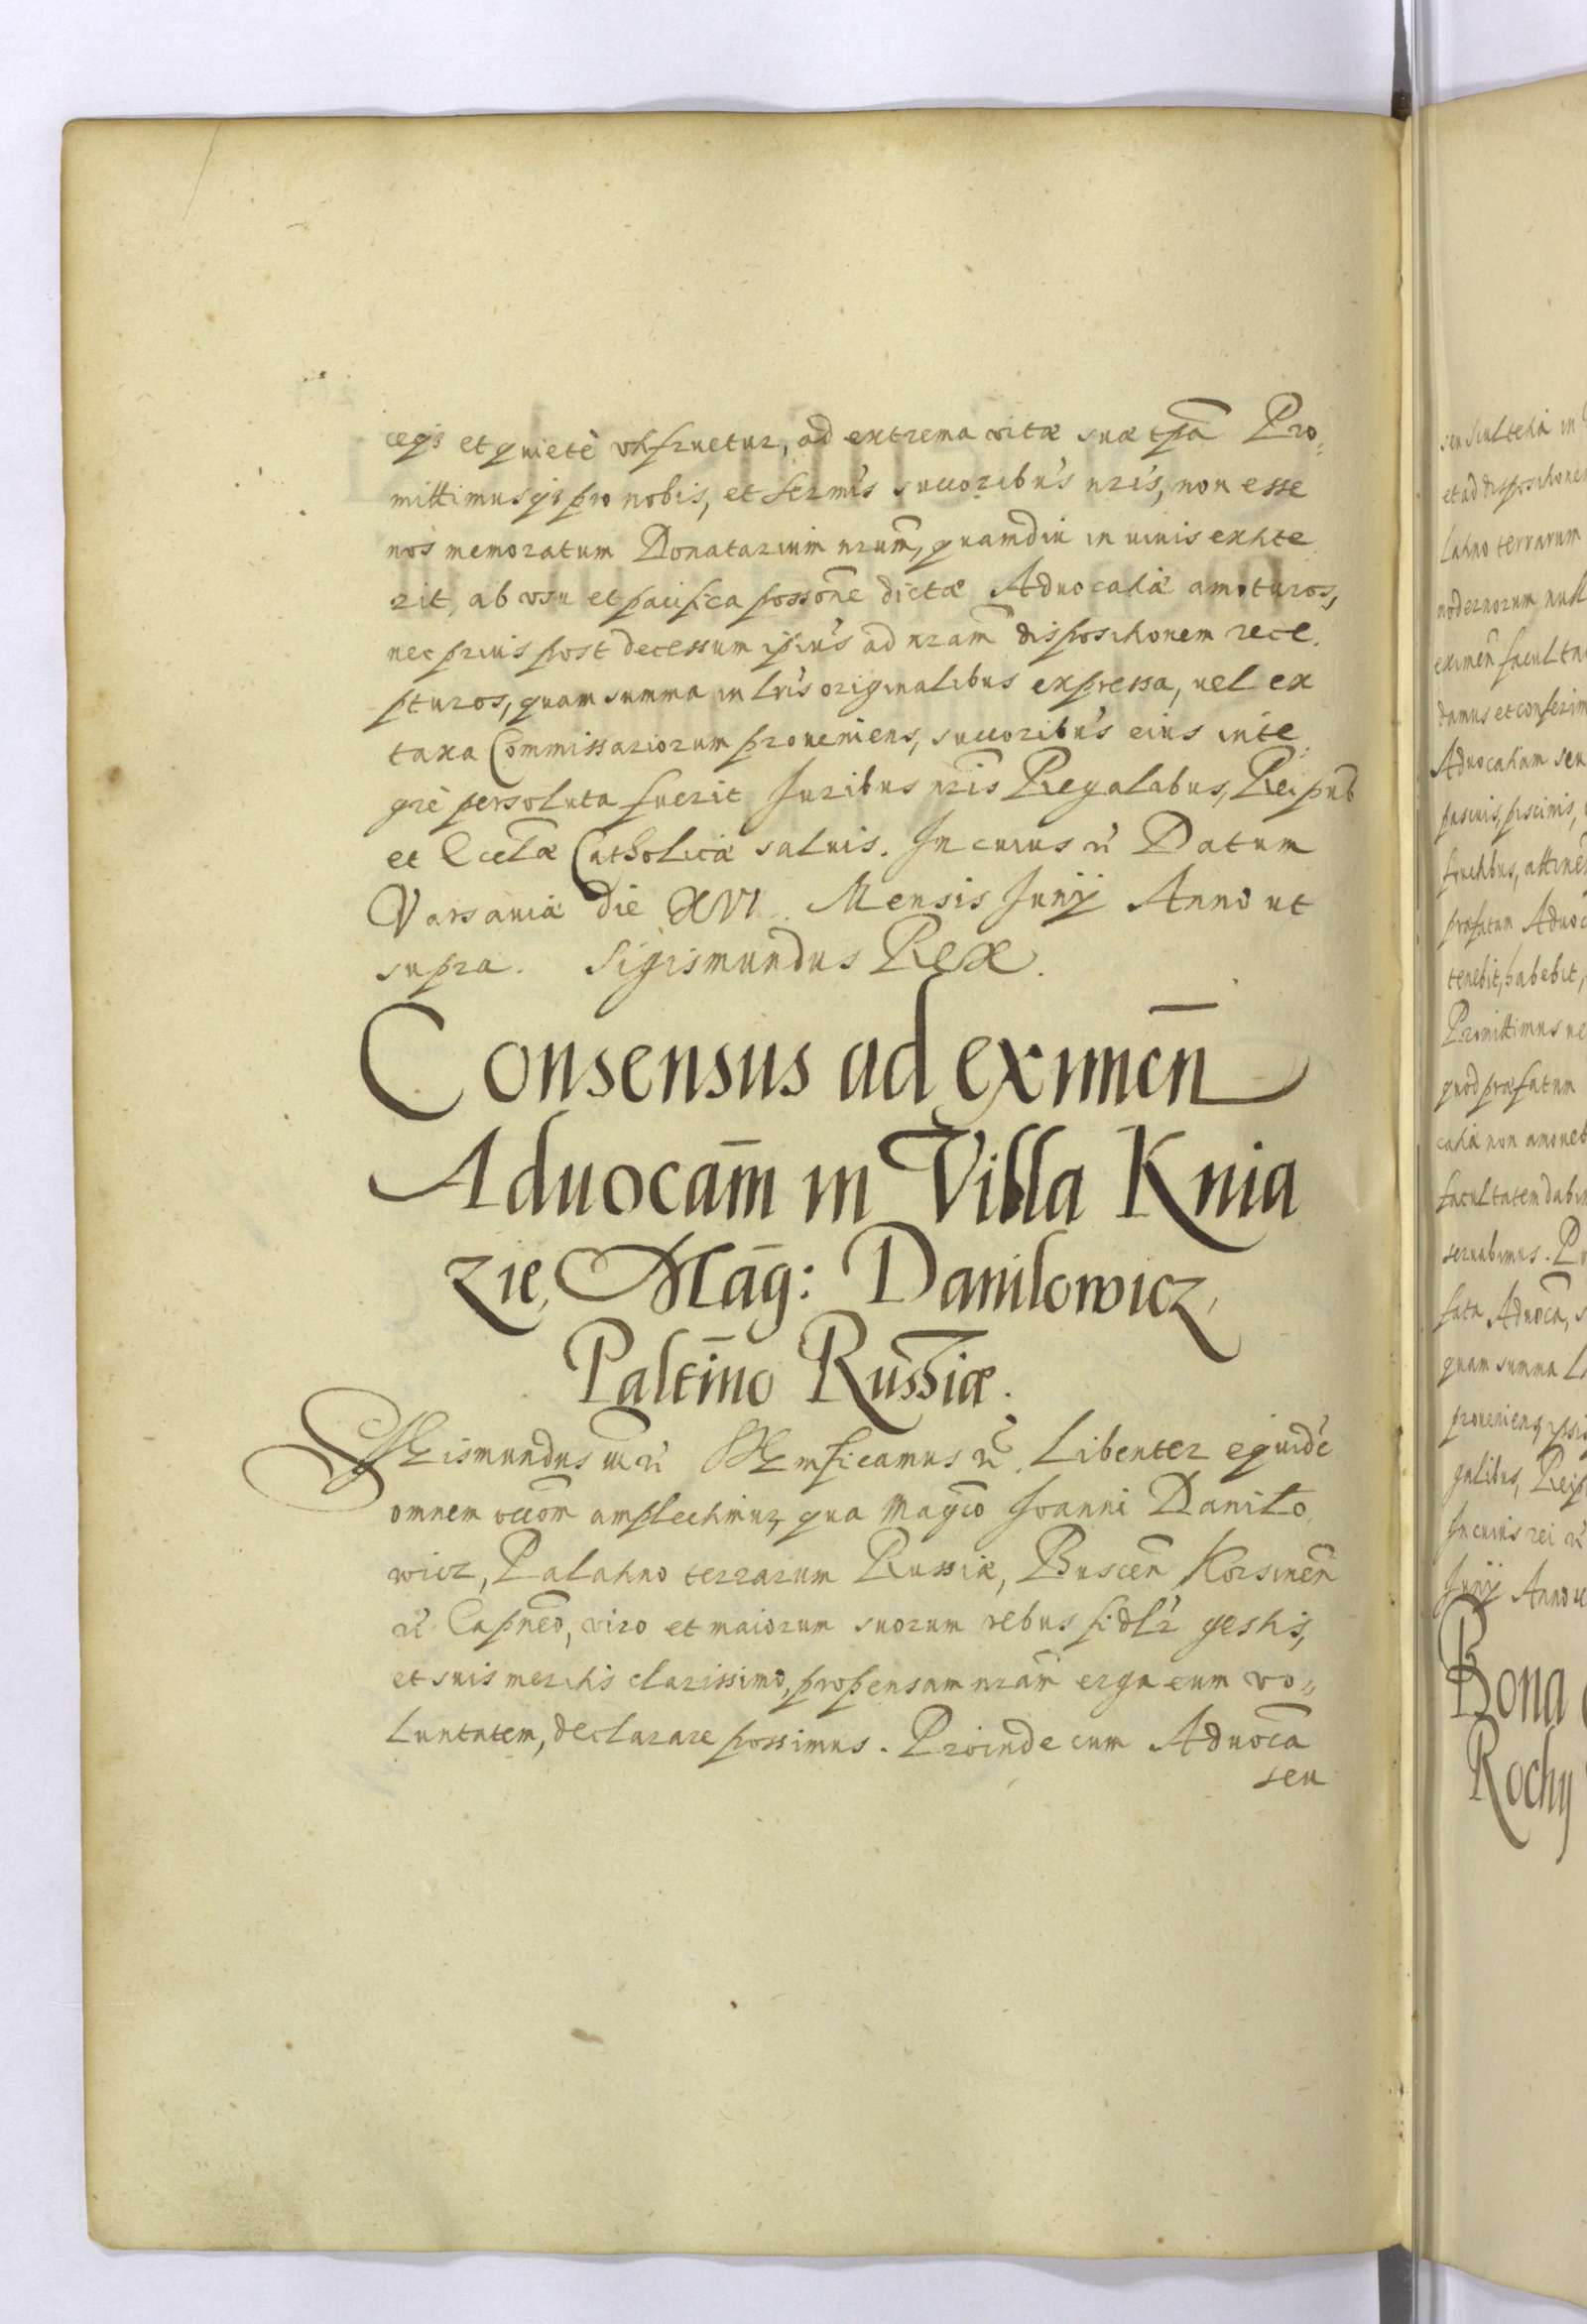 et quietè utifruetur, ad extrema vitæ suæ tp̃a Pro¸
mittimusq́ȝ pro nobis, et Sermis succoribus nris, non esse
nos memoratum Donatarium nrum̃, quamdiu in uiuis extite
rit, ab vsu et pacifica possone dictæ Aduocatiæ amoturos,
nec prius post decessum ipius ad nram dispositionem rece.
pturos, quam summa in lris originalibus expressa, uel ex
taxa Commissariorum proueniens, succoribus eius inte¸
grè persoluta fuerit Iuribus nris Regalabus, Reipub
et Eccłæ Catholicæ saluis. In cuius rė Datum
Varsauiæ die XVI. Mensis Iunij Anno ut
supra. Sigismundus Rex.
Consensus ad eximen̄
Aduocam̄ in Villa Knia
zie, Māg: Danilowicz,
Paltin̄o Russiæ.
SIgismundus III rė SIgnificamus rė. Libenter equidẽ
omnem occõm amplectimur, qua Magco Ioanni Daniło
wicz, Palatino terrarum Russiæ, Buscen̄ Korsunen̄
rė Capneo, viro et maiorum suorum rebus fidlr gestis,
et suis meritis clarissimo, propensam nram̃ erga eum vo¸
luntatem, declarare possimus. Proinde cum Aduoca
seu
seu Scultetia in
et ad dispositione
Latino terrarum
modernorum
eximen̄ faculta
damus et conferim
Aduocatiam seu
pascuis, piscinis,
præfatum
tenebit, habebit,
Promittimus
quod præfatum
catiæ non amoueb
facultatem dabim
seruabimus.
fata Aduoca,
quam summa
proueniens,
galibus, Reip
In cuius rei rė
Iunij Anno
Bona
Rochy